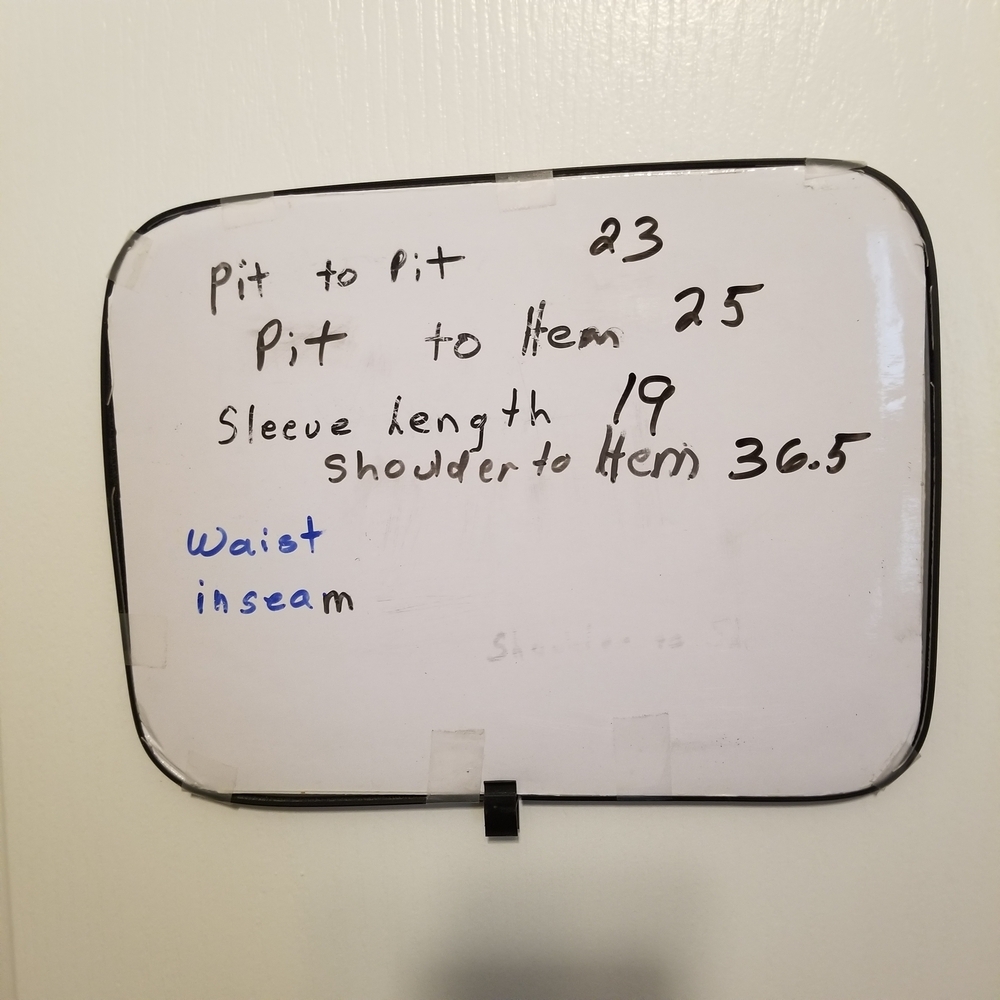 Pit to Pit 23
Pit to Hem 25
Sleeve Length 19
Shoulder to Hem 36.5
Waist
inseam